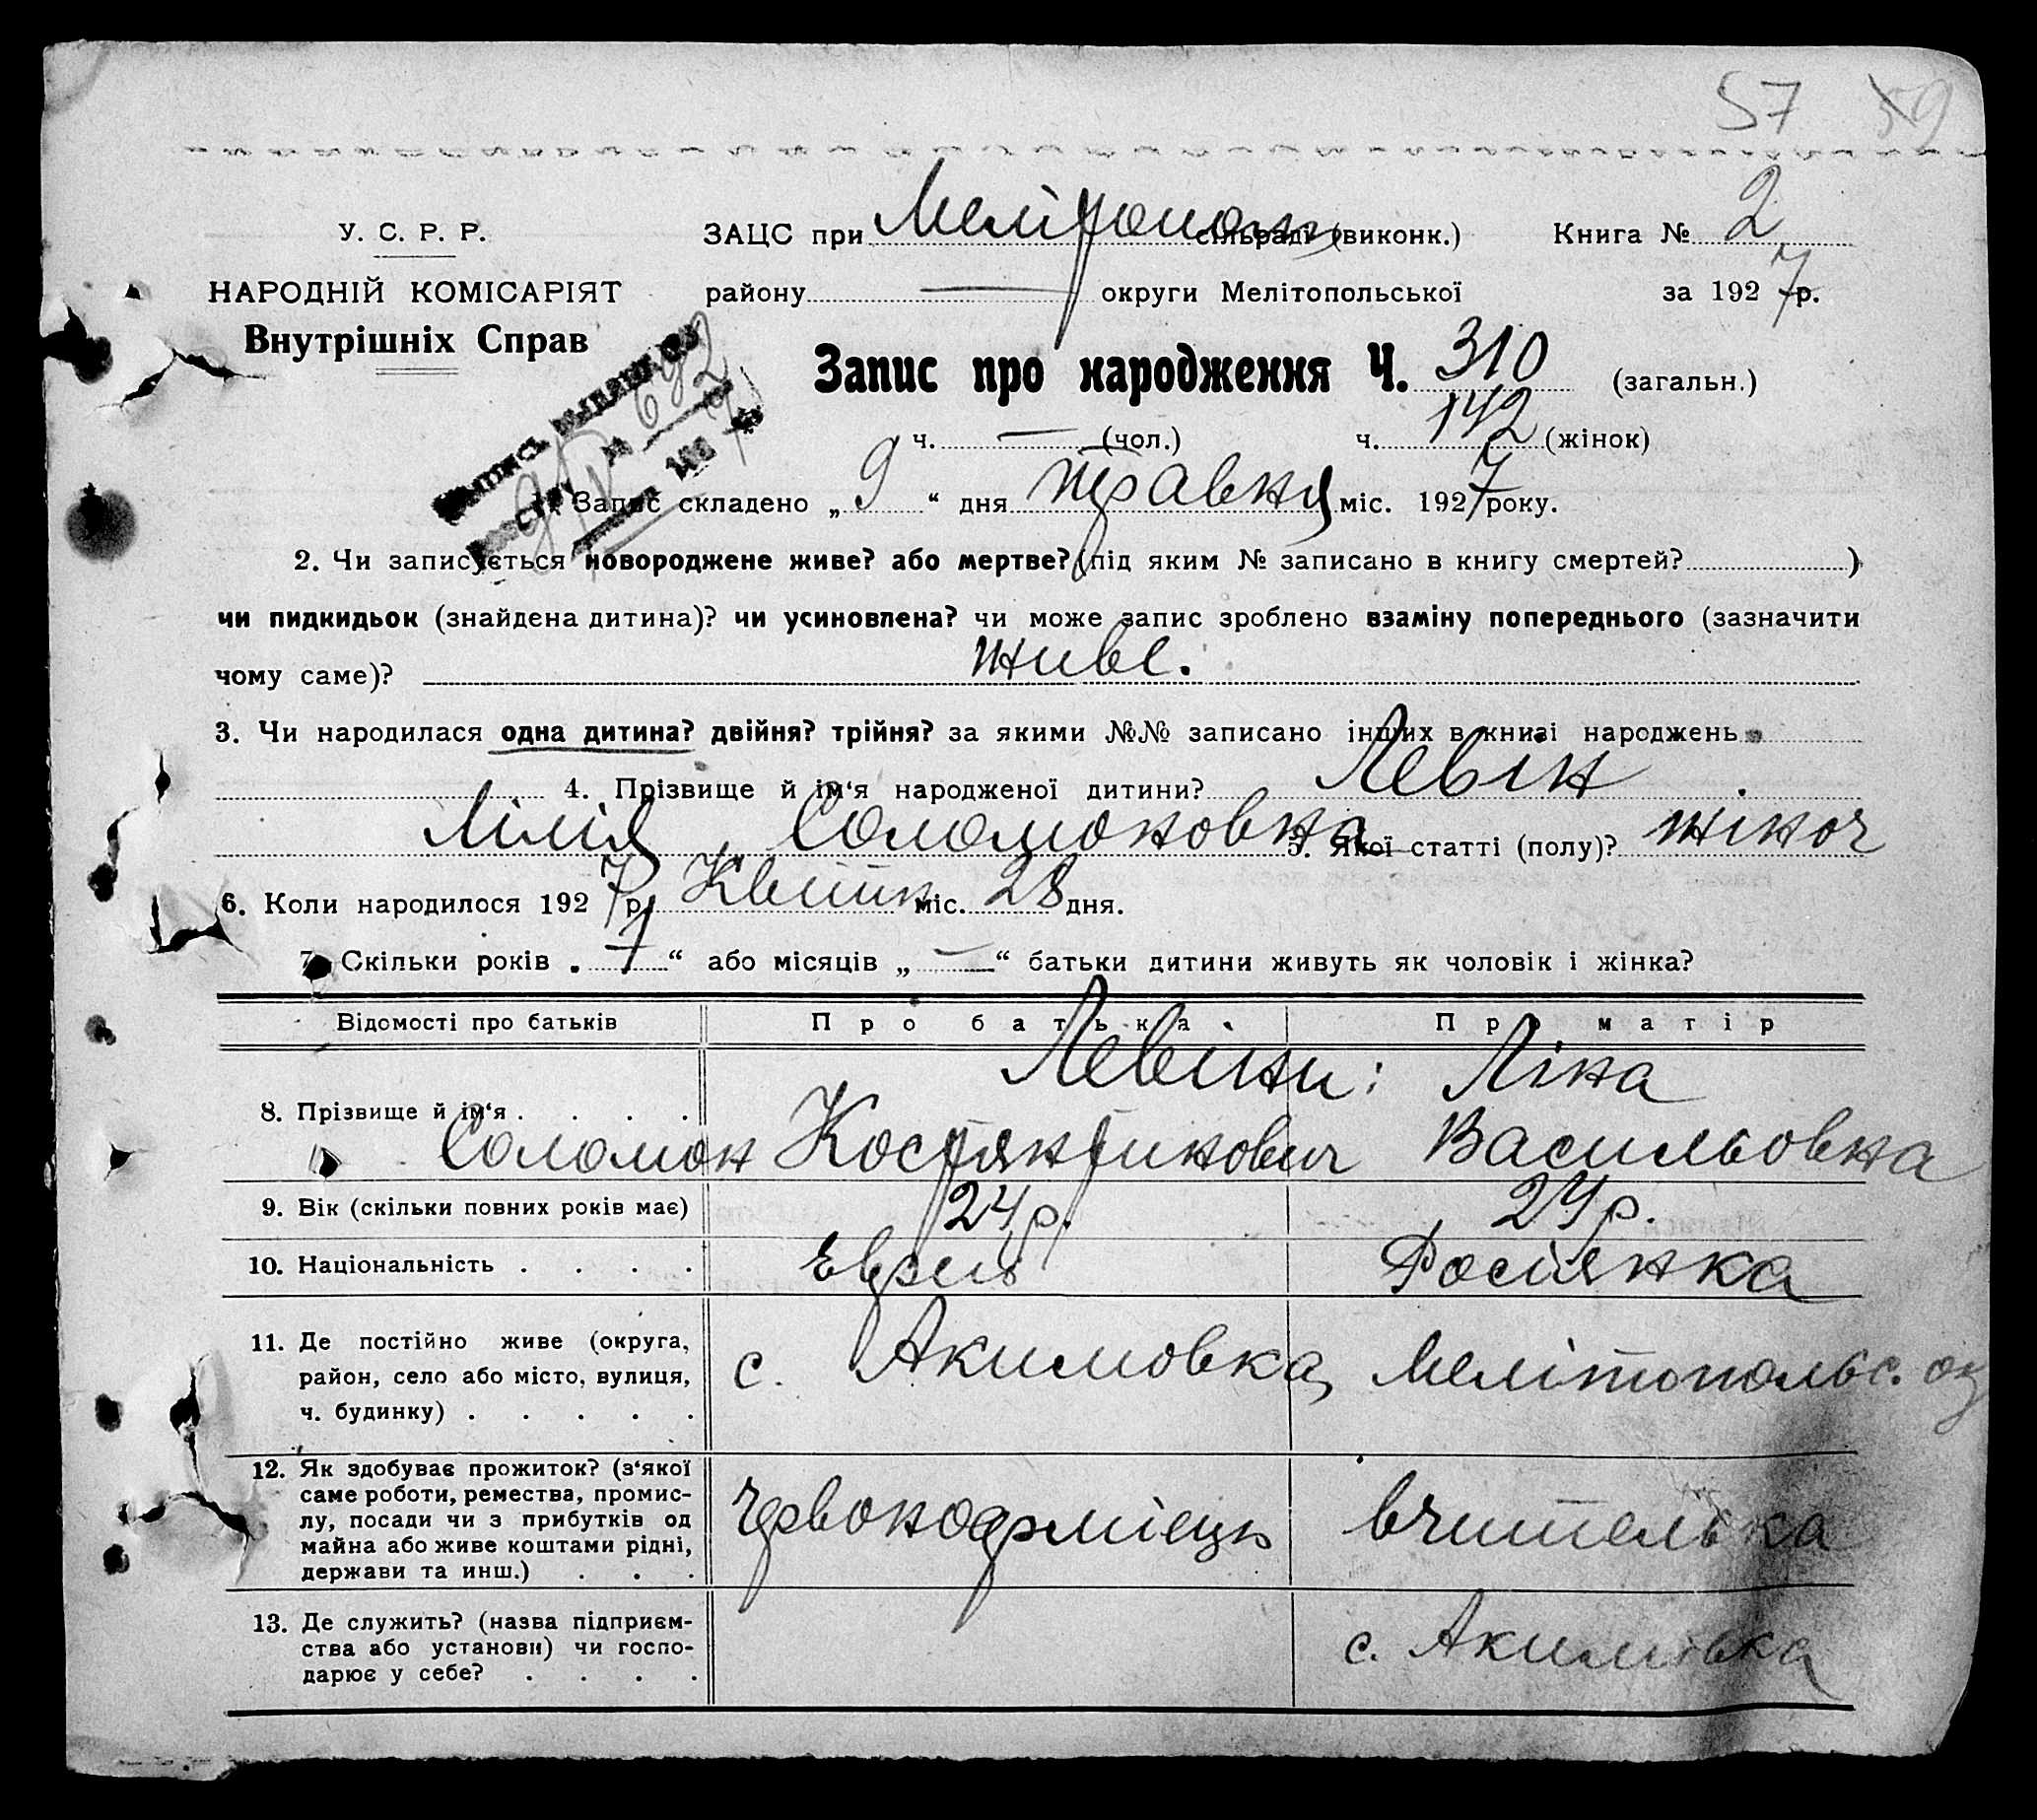 57 59
У. С. Р. Р.
НАРОДНІЙ КОМІСАРІЯТ
Внутрішніх Справ
ЗАЦС при Мелітополь сільраді (виконк.) Книга № 2
району — округи Мелітопольської за 1927 р.
Запис про народження Ч. 310 (загальн.)
ч. — (чол.) ч. 142 (жінок)
1. Запис складено „ 9 “ дня травня міс. 1927 року.
2. Чи записується новороджене живе? або мертве? (під яким № записано в книгу смертей? )
чи пидкидьок (знайдена дитина)? чи усиновлена? чи може запис зроблено взаміну попереднього (зазначити
чому саме)? живе.
3. Чи народилася одна дитина? двійня? трійня? за якими №№ записано інших в книзі народжень
4. Прізвище й ім‘я народженої дитини? Левін
Лілія Соломоновна 5. Якої статті (полу)? жіноч
6. Коли народилося 1927 р. Квітн міс. 28 дня.
7. Скільки років „ 7 “ або місяців „ — “ батьки дитини живуть як чоловік і жінка?
Відомості про батьків Про батька Про матір
Левини: Ліна
8. Прізвище й ім‘я . . . .
Соломон Костянтинович Васильовна
9. Вік (скільки повних років має) 24 р. 24 р.
10. Національність . . . . Еврей Росіянка
11. Де постійно живе (округа,
район, село або місто, вулиця,
ч. будинку) . . . . .
с. Акимовка, Мелітопольс. ок
12. Як здобуває прожиток? (з‘якої
саме роботи, ремества, промис-
лу, посади чи з прибутків од
майна або живе коштами рідні,
держави та инш.) . . .
Червоноармієць вчителька
13. Де служить? (назва підприєм-
ства або установи) чи госпо-
дарює у себе? . . . .
с. Акимівка